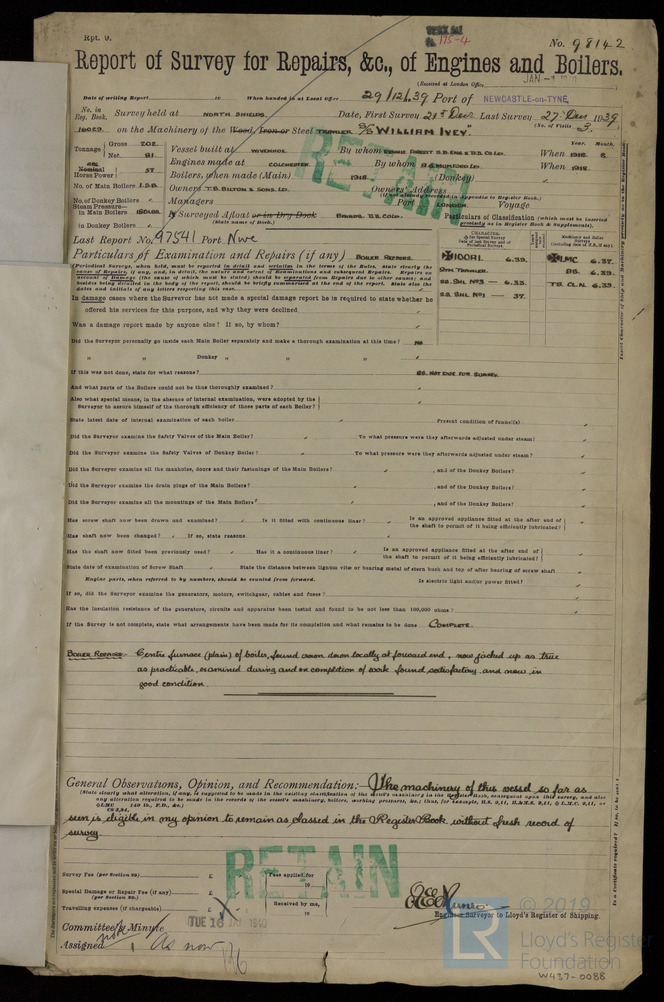 Rpt. 9.
No. 98142
Report of Survey for Repairs, &c., of Engines and Boilers.
(Received at London Office
JAN
Date of writing Report 19 When handed in at Local Office 29/12/39 Port of NEWCASTLE-on-TYNE
No. in Reg. Book. Survey held at NORTH SHIELDS Date, First Survey 21st Dec Last Survey 27 Dec 1939
on the Machinery of the Wood, Iron or Steel TRAWLER S/S "WILLIAM IVEY." (No. of Visits 3.)
Tonnage Gross 202. Net 81.
Vessel built at WIVENHOE. By whom When 1918. 8.
Engines made at COLCHESTER. By whom When 1918.
Nominal Horse Power 57
Boilers, when made (Main) 1918 (Donkey)
No. of Main Boilers 1.S.B.
Owners T.B. BILTON & SONS. LD. Owners' Address
(if not already recorded in Appendix to Register Book.)
No. of Donkey Boilers
Managers Port LONDON. Voyage
Steam Pressure in Main Boilers 180LBS.
in Donkey Boilers
If Surveyed Afloat or in Dry Dock
(State name of Dock.)
Particulars of Classification (which must be inserted precisely as in Register Book & Supplements).
Last Report No. 97541 Port Nwc
Particulars of Examination and Repairs (if any) BOILER REPAIRS.
✠100A1. 6.39.
STM TRAWLER.
SS. SHL NO3 — 6.33.
SS. SHL NO1 — 37.
✠LMC 6.37.
BS. 6.39.
TS. CL.N. 6.39.
In damage cases where the Surveyor has not made a special damage report he is required to state whether he
offered his services for this purpose, and why they were declined
Was a damage report made by anyone else? If so, by whom?
Did the Surveyor personally go inside each Main Boiler separately and make a thorough examination at this time? NO
" " Donkey " " "
If this was not done, state for what reasons? BS. NOT DUE FOR SURVEY.
And what parts of the Boilers could not be thoroughly examined?
Also what special means, in the absence of internal examination, were adopted by the
Surveyor to assure himself of the thorough efficiency of those parts of each Boiler?
State latest date of internal examination of each boiler Present condition of funnel(s)
Did the Surveyor examine the Safety Valves of the Main Boiler? To what pressure were they afterwards adjusted under steam?
Did the Surveyor examine the Safety Valves of Donkey Boiler? To what pressure were they afterwards adjusted under steam?
Did the Surveyor examine all the manholes, doors and their fastenings of the Main Boilers? , and of the Donkey Boilers?
Did the Surveyor examine the drain plugs of the Main Boilers? , and of the Donkey Boilers?
Did the Surveyor examine all the mountings of the Main Boilers? , and of the Donkey Boilers?
Has screw shaft now been drawn and examined? Is it fitted with continuous liner? Is an approved appliance fitted at the after end of
the shaft to permit of it being efficiently lubricated?
Has shaft now been changed? If so, state reasons
Has the shaft now fitted been previously used? Has it a continuous liner? Is an approved appliance fitted at the after end of
the shaft to permit of it being efficiently lubricated?
State date of examination of Screw Shaft State the distance between lignum vitæ or bearing metal of stern bush and top of after bearing of screw shaft
Engine parts, when referred to by numbers, should be counted from forward. Is electric light and/or power fitted?
If so, did the Surveyor examine the generators, motors, switchgear, cables and fuses?
Has the insulation resistance of the generators, circuits and apparatus been tested and found to be not less than 100,000 ohms?
If the Survey is not complete, state what arrangements have been made for its completion and what remains to be done COMPLETE.
BOILER REPAIRS. Centre furnace (plain) of boiler, found crown down locally at forward end, now jacked up as true
as practicable, examined during and on completion of work found satisfactory and now in
good condition.
General Observations, Opinion, and Recommendation:— The machinery of this vessel so far as
seen is eligible in my opinion to remain as classed in the Register Book without fresh record of
survey.
RETAIN
RETAIN
Survey Fee (per Section 29) £
Fees applied for
19
Special Damage or Repair Fee (if any) £
(per Section 29)
Received by me,
Travelling expenses (if chargeable) £
19
Engineer Surveyor to Lloyd's Register of Shipping.
Committee's Minute TUE 16 JAN 1940
Assigned As now
© 2019
LR
Lloyd's Register
Foundation
W437-0088